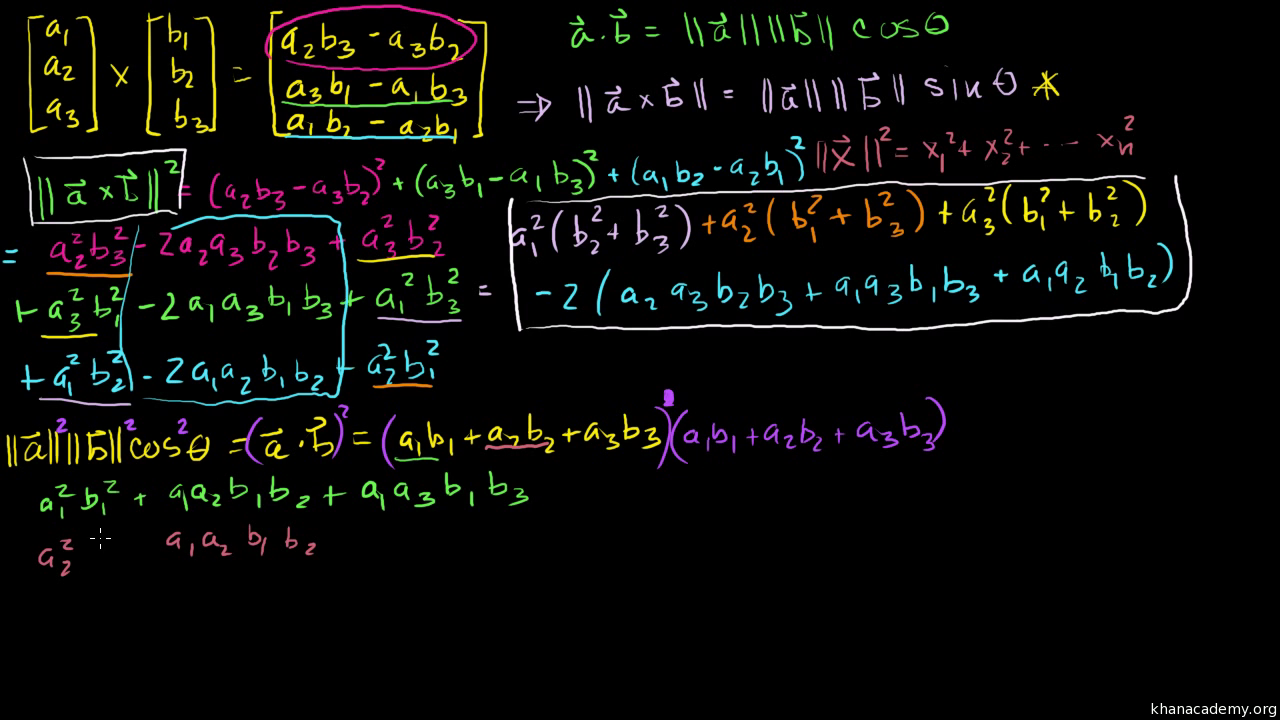 [a₁ a₂ a₃] × [b₁ b₂ b₃] = [a₂b₃ - a₃b₂
a₃b₁ - a₁b₃
a₁b₂ - a₂b₁]
a⃗ · b⃗ = ||a⃗|| ||b⃗|| cos θ
⇒ ||a⃗ × b⃗|| = ||a⃗|| ||b⃗|| sin θ *
||x⃗||² = x₁² + x₂² + ... xₙ²
||a⃗ × b⃗||² = (a₂b₃ - a₃b₂)² + (a₃b₁ - a₁b₃)² + (a₁b₂ - a₂b₁)²
= a₂²b₃² - 2a₂a₃b₂b₃ + a₃²b₂²
+ a₃²b₁² - 2a₁a₃b₁b₃ + a₁²b₃²
+ a₁²b₂² - 2a₁a₂b₁b₂ + a₂²b₁²
= a₁²(b₂² + b₃²) + a₂²(b₁² + b₃²) + a₃²(b₁² + b₂²)
-2(a₂a₃b₂b₃ + a₁a₃b₁b₃ + a₁a₂b₁b₂)
||a⃗||²||b⃗||²cos²θ = (a⃗ · b⃗)² = (a₁b₁ + a₂b₂ + a₃b₃)(a₁b₁ + a₂b₂ + a₃b₃)
a₁²b₁² + a₁a₂b₁b₂ + a₁a₃b₁b₃
a₂² a₁a₂b₁b₂
khanacademy.org